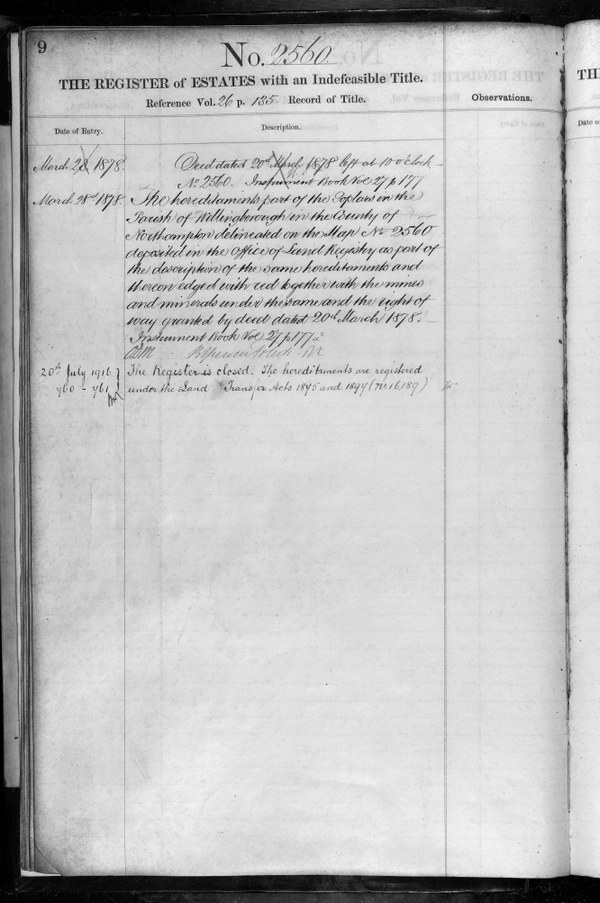 9
No. 2560
THE REGISTER of ESTATES with an Indefeasible Title.
Reference Vol. 26 p. 135 Record of Title.
Observations.
Date of Entry.
Description.
March 28 1878
Deed dated 20th March 1878 left at 10 o'clock
No 2560. Instrument Book Vol 27 p 177
March 28th 1878.
The hereditaments part of the Poplars in the
Parish of Wellingborough in the County of
Northampton delineated on the Map No 2560
deposited in the Office of Land Registry as part of
the description of the same hereditaments and
thereon edged with red together with the mines
and minerals under the same and the right of
way granted by deed dated 20th March 1878.
Instrument Book Vol 27 p 177
20th July 1916
760 - 761
The Register is closed. The hereditaments are registered
under the Land Transfer Acts 1875 and 1897
TH
Date o